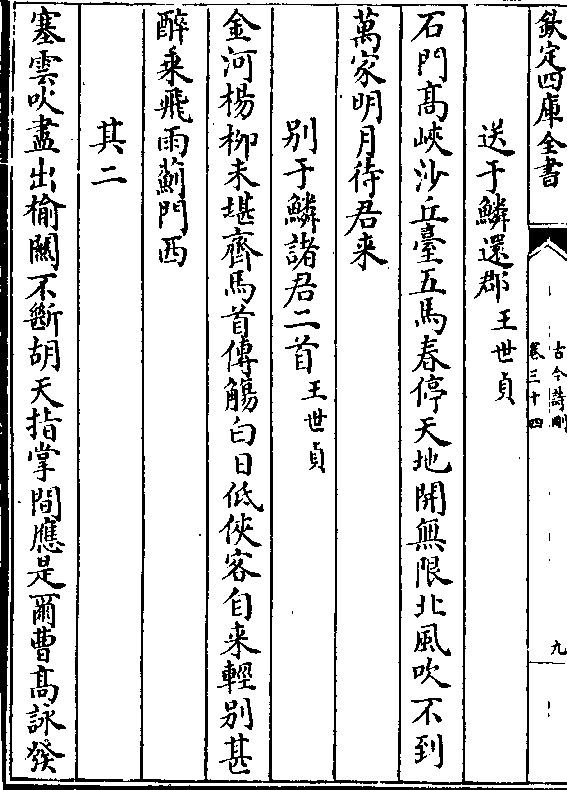 欽定四庫全書
古今詩刪
卷三十四
九
送于鱗還郡王世貞
石門髙峽沙丘臺五馬春停天地開無限北風吹不到
萬家明月待君来
别于鱗諸君二首王世貞
金河楊柳未堪齊馬首傳觴白日低俠客自来輕别甚
醉乗飛雨薊門西
其二
塞雲吹盡出榆關不斷胡天指掌間應是爾曹髙詠發